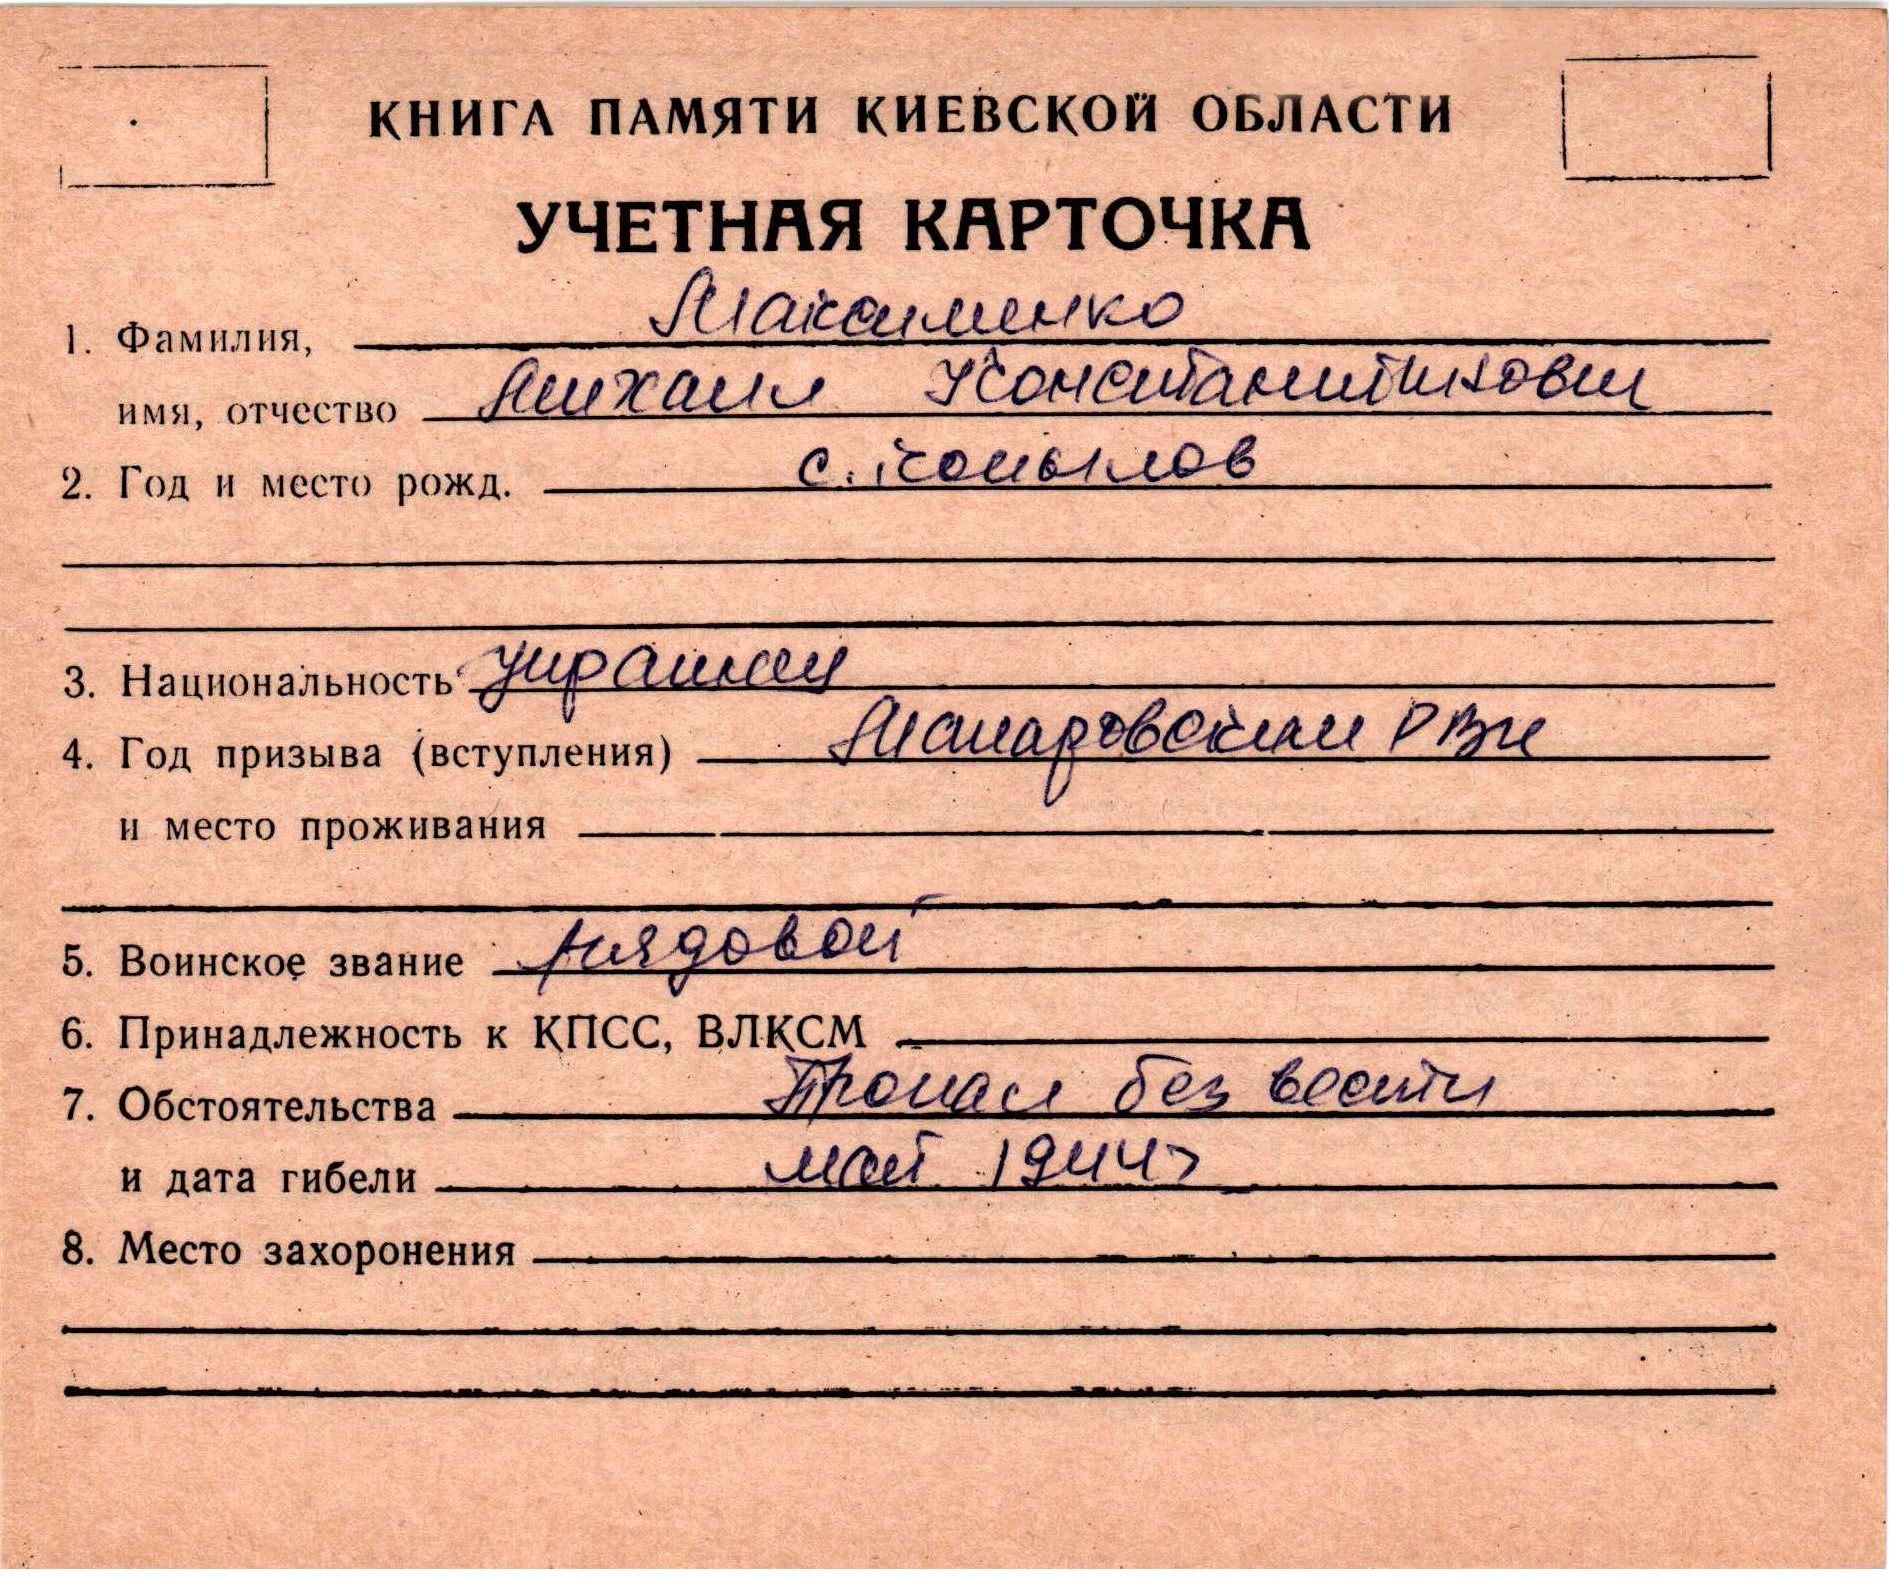 КНИГА ПАМЯТИ КИЕВСКОЙ ОБЛАСТИ
УЧЕТНАЯ КАРТОЧКА
1. Фамилия, Максименко
имя, отчество Михаил Константинович
2. Год и место рожд. с. Копылов
3. Национальность украинец
4. Год призыва (вступления) Макаровским РВК
и место проживания
5. Воинское звание рядовой
6. Принадлежность к КПСС, ВЛКСМ
7. Обстоятельства Пропал без вести
и дата гибели май 1944г
8. Место захоронения